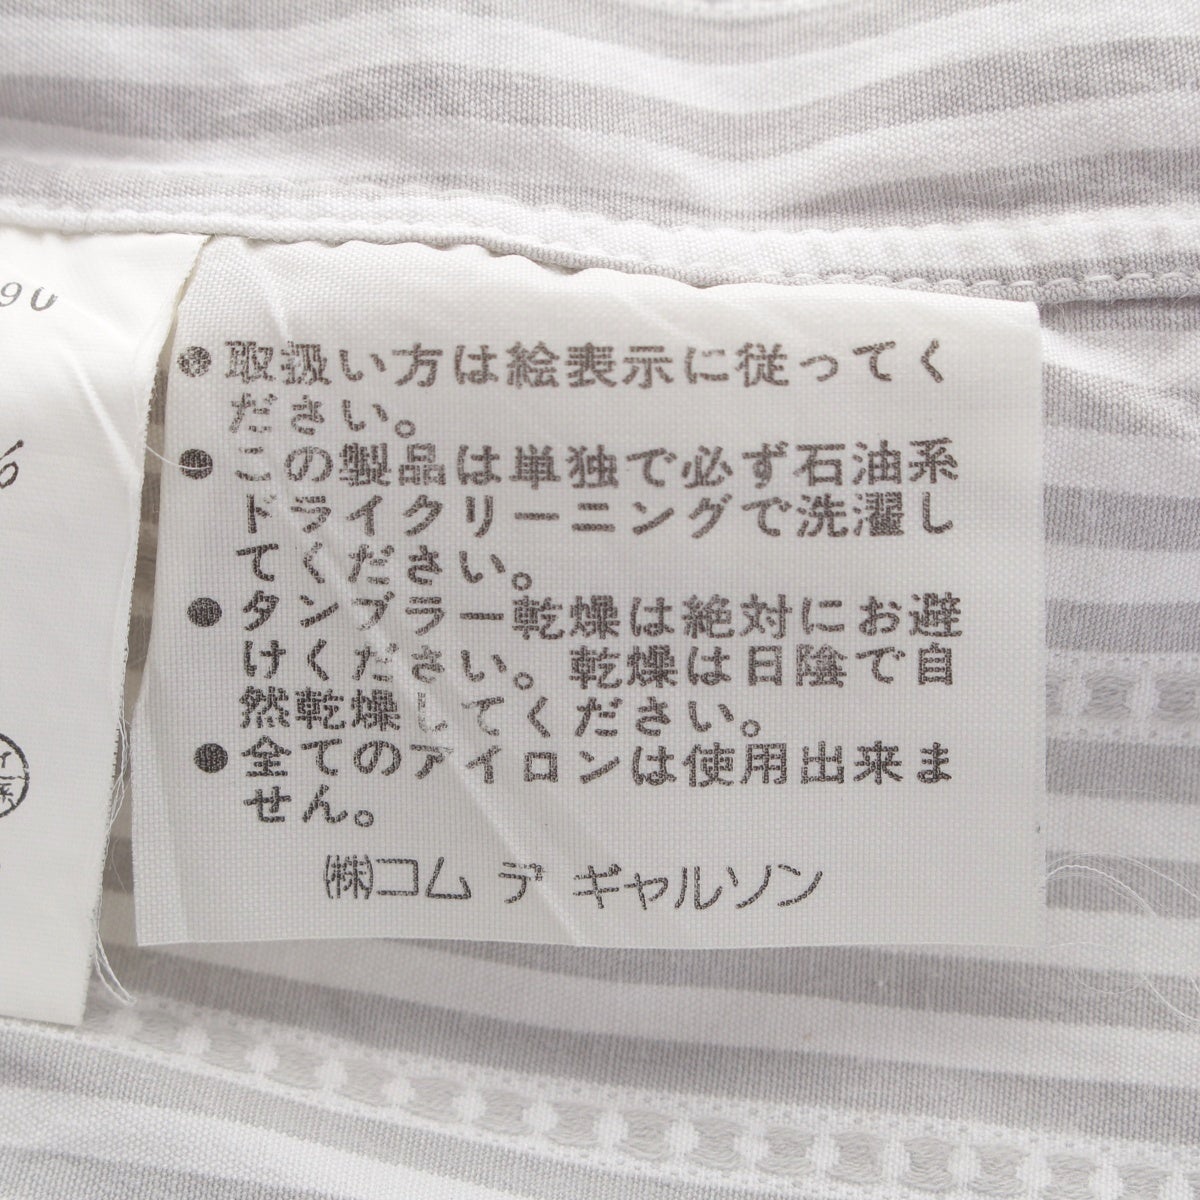 90
%
● 取扱い方は絵表示に従ってく
ださい。
● この製品は単独で必ず石油系
ドライクリーニングで洗濯し
てください。
● タンブラー乾燥は絶対にお避
けください。乾燥は日陰で自
然乾燥してください。
● 全てのアイロンは使用出来ま
せん。
㈱コム デ ギャルソン